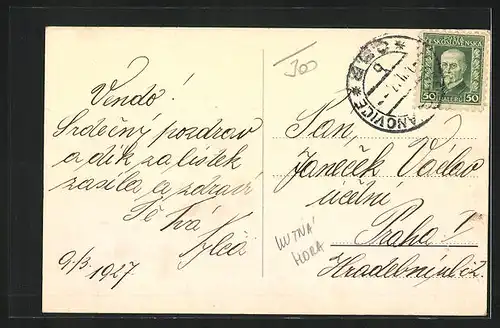 Vendo!
Srdečný pozdrav
a dík za lístek
zasílá a zdraví
Tě Tvá
9./3. 1927
300
ČESKOSLOVENSKÁ
50 HALÉŘŮ 50
ANOVICE
ČSR
6
Pan,
Janeček Václav
účetní
Praha I
Hradební ul. 12
KUTNÁ
HORA